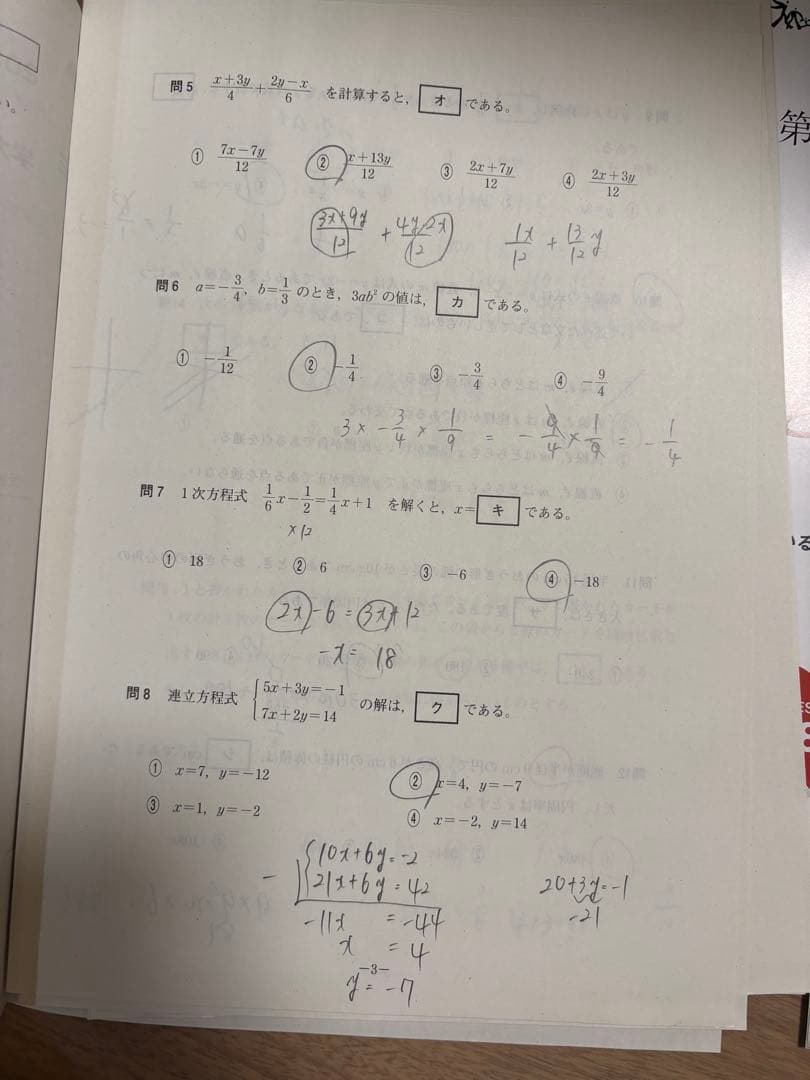 問5 (x+3y)/4 + (2y−x)/6 を計算すると, オ である。
① (7x−7y)/12 ② (x+13y)/12 ③ (2x+7y)/12 ④ (2x+3y)/12
(3x+9y)/12 + (4y-2x)/12 1x/12 + 13/12 y
問6 a=−3/4, b=1/3 のとき, 3ab² の値は, カ である。
① −1/12 ② −1/4 ③ −3/4 ④ −9/4
3 × -3/4 × 1/9 = -9/4 × 1/9 = -1/4
問7 1次方程式 1/6 x−1/2=1/4 x+1 を解くと, x= キ である。
×12
① 18 ② 6 ③ −6 ④ −18
2x-6 = 3x+12
-x = 18
問8 連立方程式 { 5x+3y=−1
7x+2y=14 の解は, ク である。
① x=7, y=−12 ② x=4, y=−7
③ x=1, y=−2 ④ x=−2, y=14
- { 10x+6y=-2
21x+6y=42
-11x = -44
x = 4
y = -7
20+3y=-1
-21
−3−
第